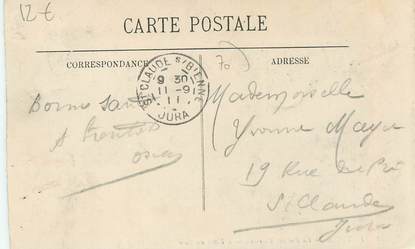 12 €
CARTE POSTALE
CORRESPONDANCE
ADRESSE
70
ST CLAUDE S/ BIENNE
9 30
11 -9
11
JURA
Bonne Santé
A bientôt
Mademoiselle
Yvonne Mayer
19 Rue du Pré
St Claude
Jura